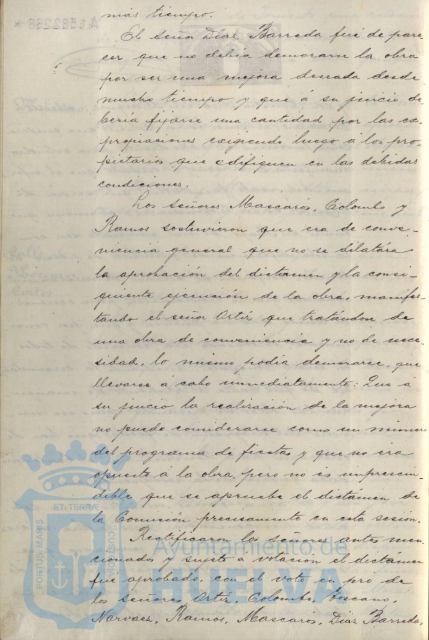 más tiempo.
El Señor Díaz Barreda fué de pare
cer que no debía demorarse la obra
por ser una mejora deseada desde
mucho tiempo y que á su juicio de
bería fijarse una cantidad por las ex
propiaciones exigiendo luego á los pro
pietarios que edifiquen en las debidas
condiciones.
Los Señores Mascarós, Colombo y
Ramos sostuvieron que era de conve
niencia general que no se dilatára
la aprobación del dictamen y la consi
guiente ejecución de la obra, manifes
tando el señor Ortiz que tratándose de
una obra de conveniencia y no de nece
sidad, lo mismo podía demorarse, que
llevarse á cabo inmediatamente: Que á
su juicio la realización de la mejora
no puede considerarse como un número
del programa de fiestas y que no era
opuesto á la obra, pero no es imprescin
dible que se apruebe el dictamen de
la Comisión precisamente en esta sesión.
Rectificaron los señores antes men
cionados y sujeto á votación el dictámen
fué aprobado, con el voto en pro de
los señores Ortiz, Colombo,
Narvaez, Ramos, Mascarós, Díaz Barreda,
PORTUS MARIS
ET TERRA
CUSTODIA
Ayuntamiento de
HUELVA